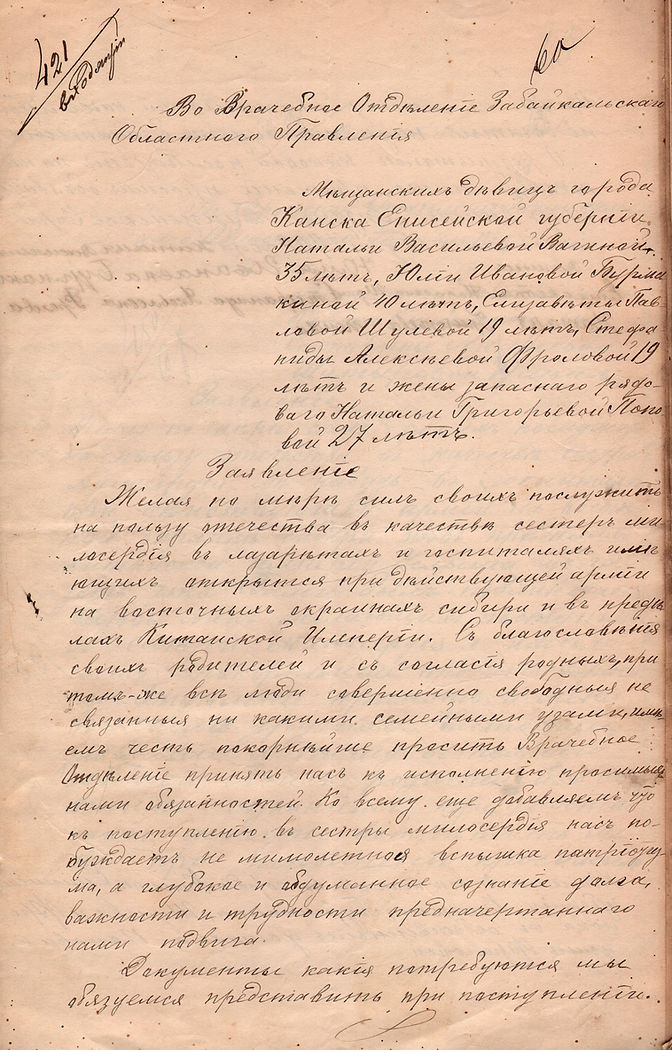 421
входящій
Во Врачебное Отдѣленіе Забайкальскаго
Областного Правленія
Мѣщанскихъ дѣвицъ города
Канска Енисейской губерніи
Натальи Васильевой Вагиной
35 лѣтъ, Юліи Ивановой Бурма
киной 40 лѣтъ, Елизавѣты Пав
ловой Шулевой 19 лѣтъ, Стефа
ниды Алексѣевой Фроловой 19
лѣтъ и жены запаснаго рядо-
ваго Натальи Григорьевой Попо
вой 27 лѣтъ.
Заявленіе
Желая по мѣрѣ силъ своихъ послужить
на пользу отечества въ качествѣ сестеръ ми
лосердія въ лазарѣтахъ и госпиталяхъ имѣ
ющихъ открытся при дѣйствующей арміи
на восточныхъ окраинахъ сибири и въ предѣ
лахъ Китайской Имперіи. Съ благословѣнія
своихъ родителей и съ согласія родныхъ, при
томъ-же всѣ люди совершенно свободныя не
связанныя ни какими семейными узами, имѣ
емъ честь покорнѣйше просить Врачебное
Отдѣленіе принять насъ къ исполненію просимыхъ
нами обязанностей. Ко всему еще добавляемъ что
къ поступленію въ сестры милосердія насъ по-
буждаетъ не мимолетная вспышка патріотиз
ма, а глубокое и обдуманное сознаніе долга,
важности и трудности предначертаннаго
нами подвига.
Документы какія потребуются мы
обязуемся представить при поступленіи.